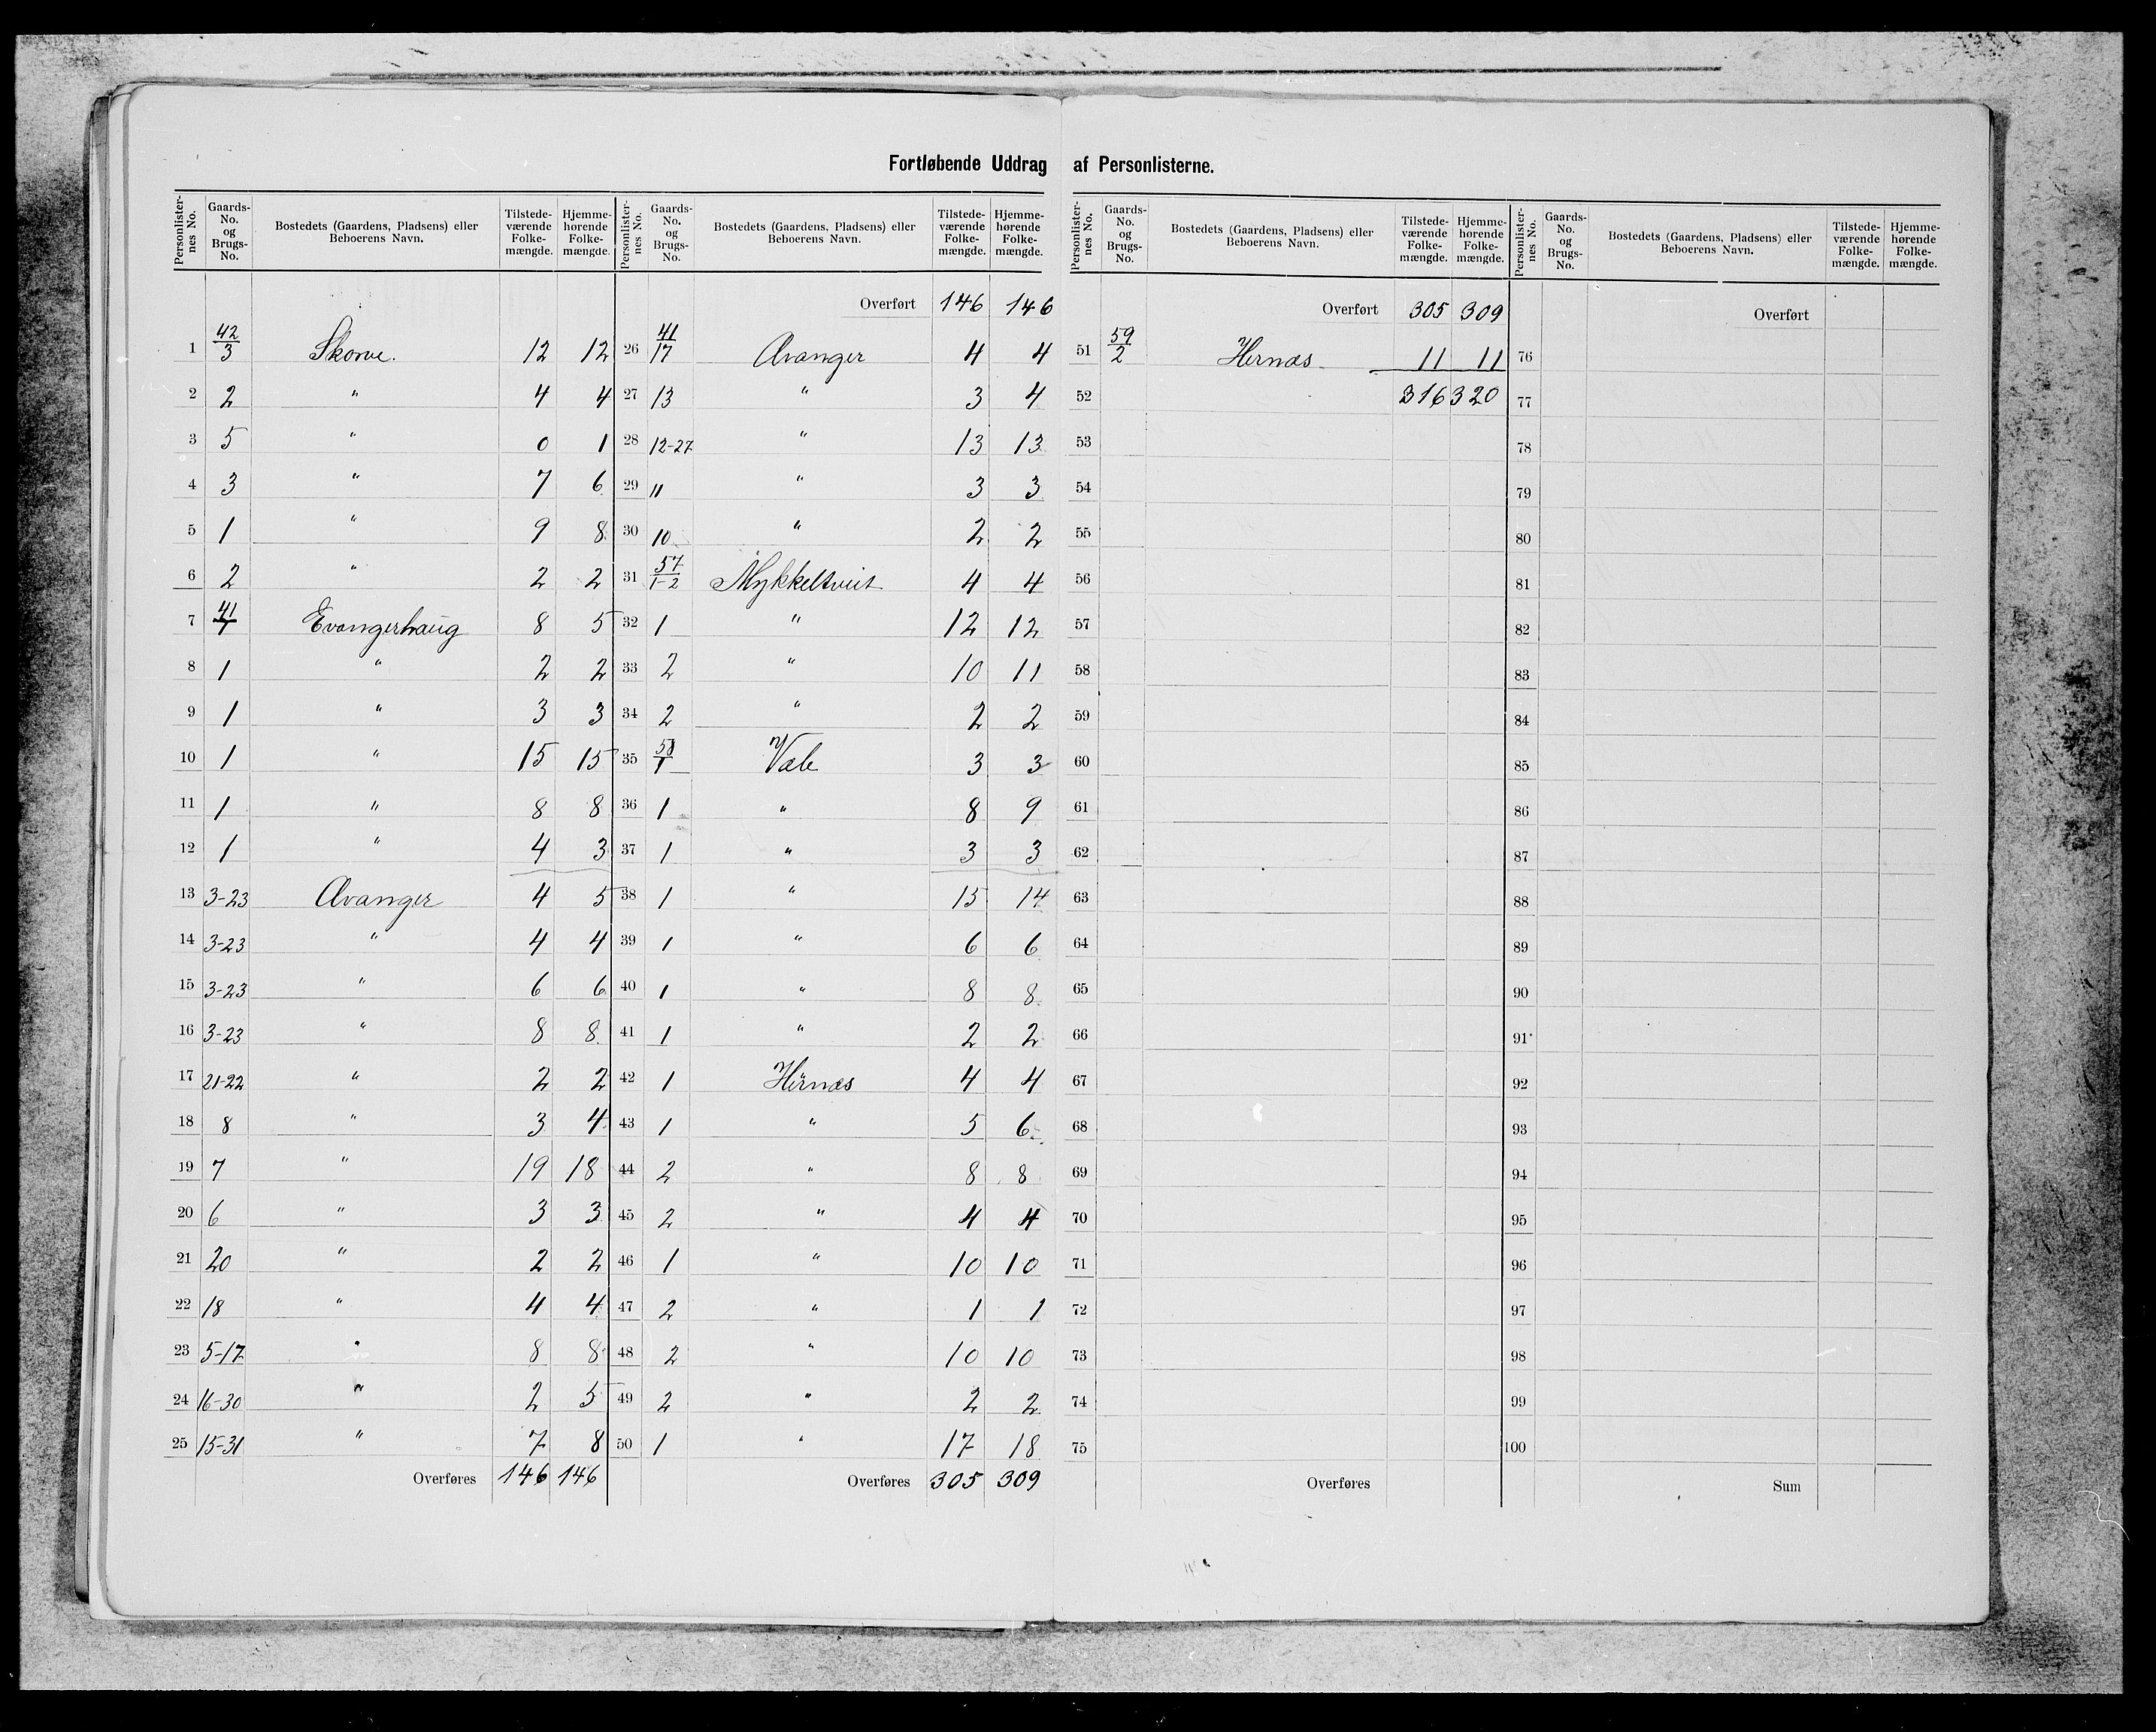 Fortløbende Uddrag af Personlisterne.
Personlister-nes No. | Gaards-No. og Brugs-No. | Bostedets (Gaardens, Pladsens) eller Beboerens Navn. | Tilstede-værende Folke-mængde. | Hjemme-hørende Folke-mængde.
1 42/3 Skorve. 12 12
2 2 " 4 4
3 5 " 0 1
4 3 " 7 6
5 1 " 9 8
6 2 " 2 2
7 41/1 Evangerhaug 8 5
8 1 " 2 2
9 1 " 3 3
10 1 " 15 15
11 1 " 8 8
12 1 " 4 3
13 3-23 Avanger 4 5
14 3-23 " 4 4
15 3-23 " 6 6
16 3-23 " 8 8
17 21-22 " 2 2
18 8 " 3 4
19 7 " 19 18
20 6 " 3 3
21 20 " 2 2
22 18 " 4 4
23 5-17 " 8 8
24 16-30 " 2 5
25 15-31 " 7 8
Overføres 146 146
Personlister-nes No. | Gaards-No. og Brugs-No. | Bostedets (Gaardens, Pladsens) eller Beboerens Navn. | Tilstede-værende Folke-mængde. | Hjemme-hørende Folke-mængde.
Overført 146 146
26 41/17 Avanger 4 4
27 13 " 3 4
28 12-27 " 13 13
29 11 " 3 3
30 10 " 2 2
31 57/1-2 Mykkeltveit 4 4
32 1 " 12 12
33 2 " 10 11
34 2 " 2 2
35 58/1 Væle 3 3
36 1 " 8 9
37 1 " 3 3
38 1 " 15 14
39 1 " 6 6
40 1 " 8 8
41 1 " 2 2
42 1 Hernæs 4 4
43 1 " 5 6
44 2 " 8 8
45 2 " 4 4
46 1 " 10 10
47 2 " 1 1
48 2 " 10 10
49 2 " 2 2
50 1 " 17 18
Overføres 305 309
Personlister-nes No. | Gaards-No. og Brugs-No. | Bostedets (Gaardens, Pladsens) eller Beboerens Navn. | Tilstede-værende Folke-mængde. | Hjemme-hørende Folke-mængde.
Overført 305 309
51 59/2 Hernæs 11 11
52 316 320
53
54
55
56
57
58
59
60
61
62
63
64
65
66
67
68
69
70
71
72
73
74
75
Overføres
Personlister-nes No. | Gaards-No. og Brugs-No. | Bostedets (Gaardens, Pladsens) eller Beboerens Navn. | Tilstede-værende Folke-mængde. | Hjemme-hørende Folke-mængde.
Overført
76
77
78
79
80
81
82
83
84
85
86
87
88
89
90
91
92
93
94
95
96
97
98
99
100
Sum